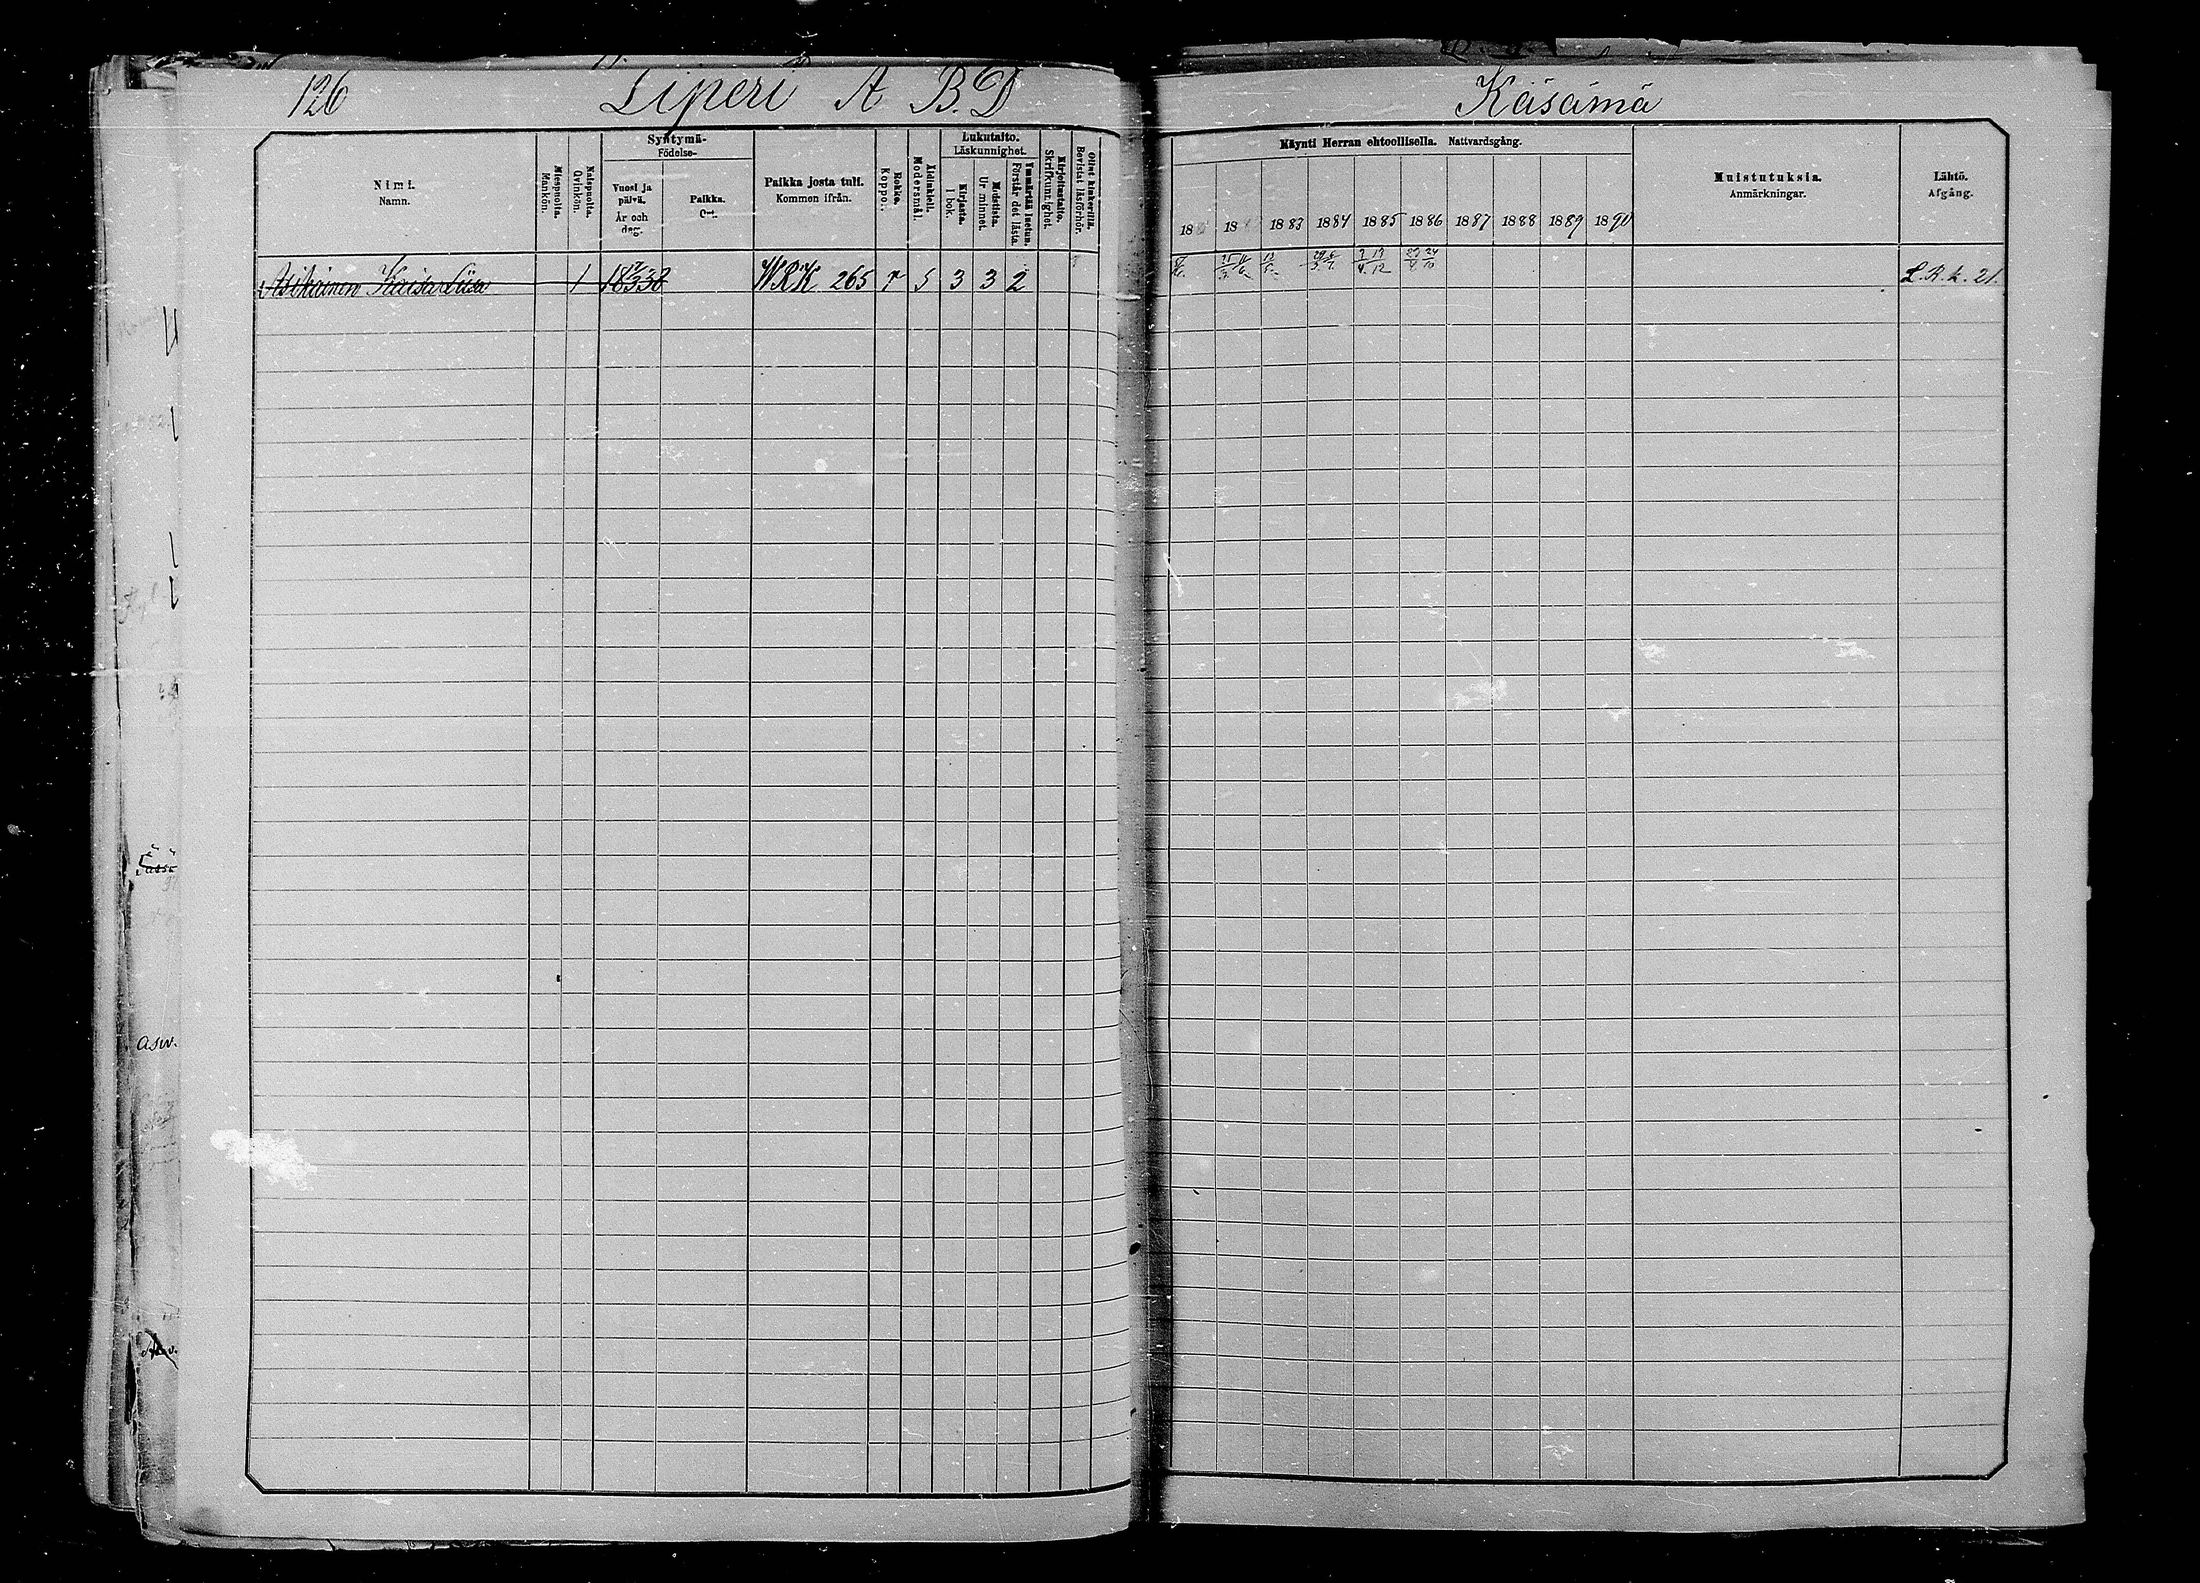 126 Liperi A B.D Käsämä
Nimi.
Namn.
Miespuolta.
Mankön.
Naispuolta.
Qvinkön.
Syntymä-
Födelse-
Vuosi ja päivä.
År och dag.
Paikka.
Ort.
Paikka josta tuli.
Kommen ifrån.
Rokko.
Koppor.
Äidinkieli.
Modersmål.
Lukutaito.
Läskunnighet.
Kirjasta.
I bok.
Muistista.
Ur minnet.
Ymmärtää luetun.
Förstår det lästa.
Kirjoitustaito.
Skrifkunnighet.
Ollut kinkerillä.
Bevistat läsförhör.
Käynti Herran ehtoollisella. Nattvardsgång.
18 18 1883 1884 1885 1886 1887 1888 1889 1890
Muistutuksia.
Anmärkningar.
Lähtö.
Afgång.
Asikainen Kaisa Liisa 1 WRK 265 r S 3 3 2 L.K.L. 21.
asw.